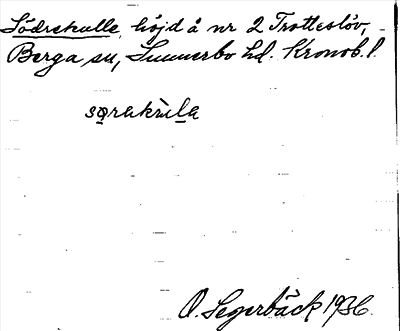 Södrekulle, höjd å nr 2 Trotteslöv,
Berga sn, Sunnerbo hd. Kronob. l.
sørakùla
O. Segerbäck 1936.